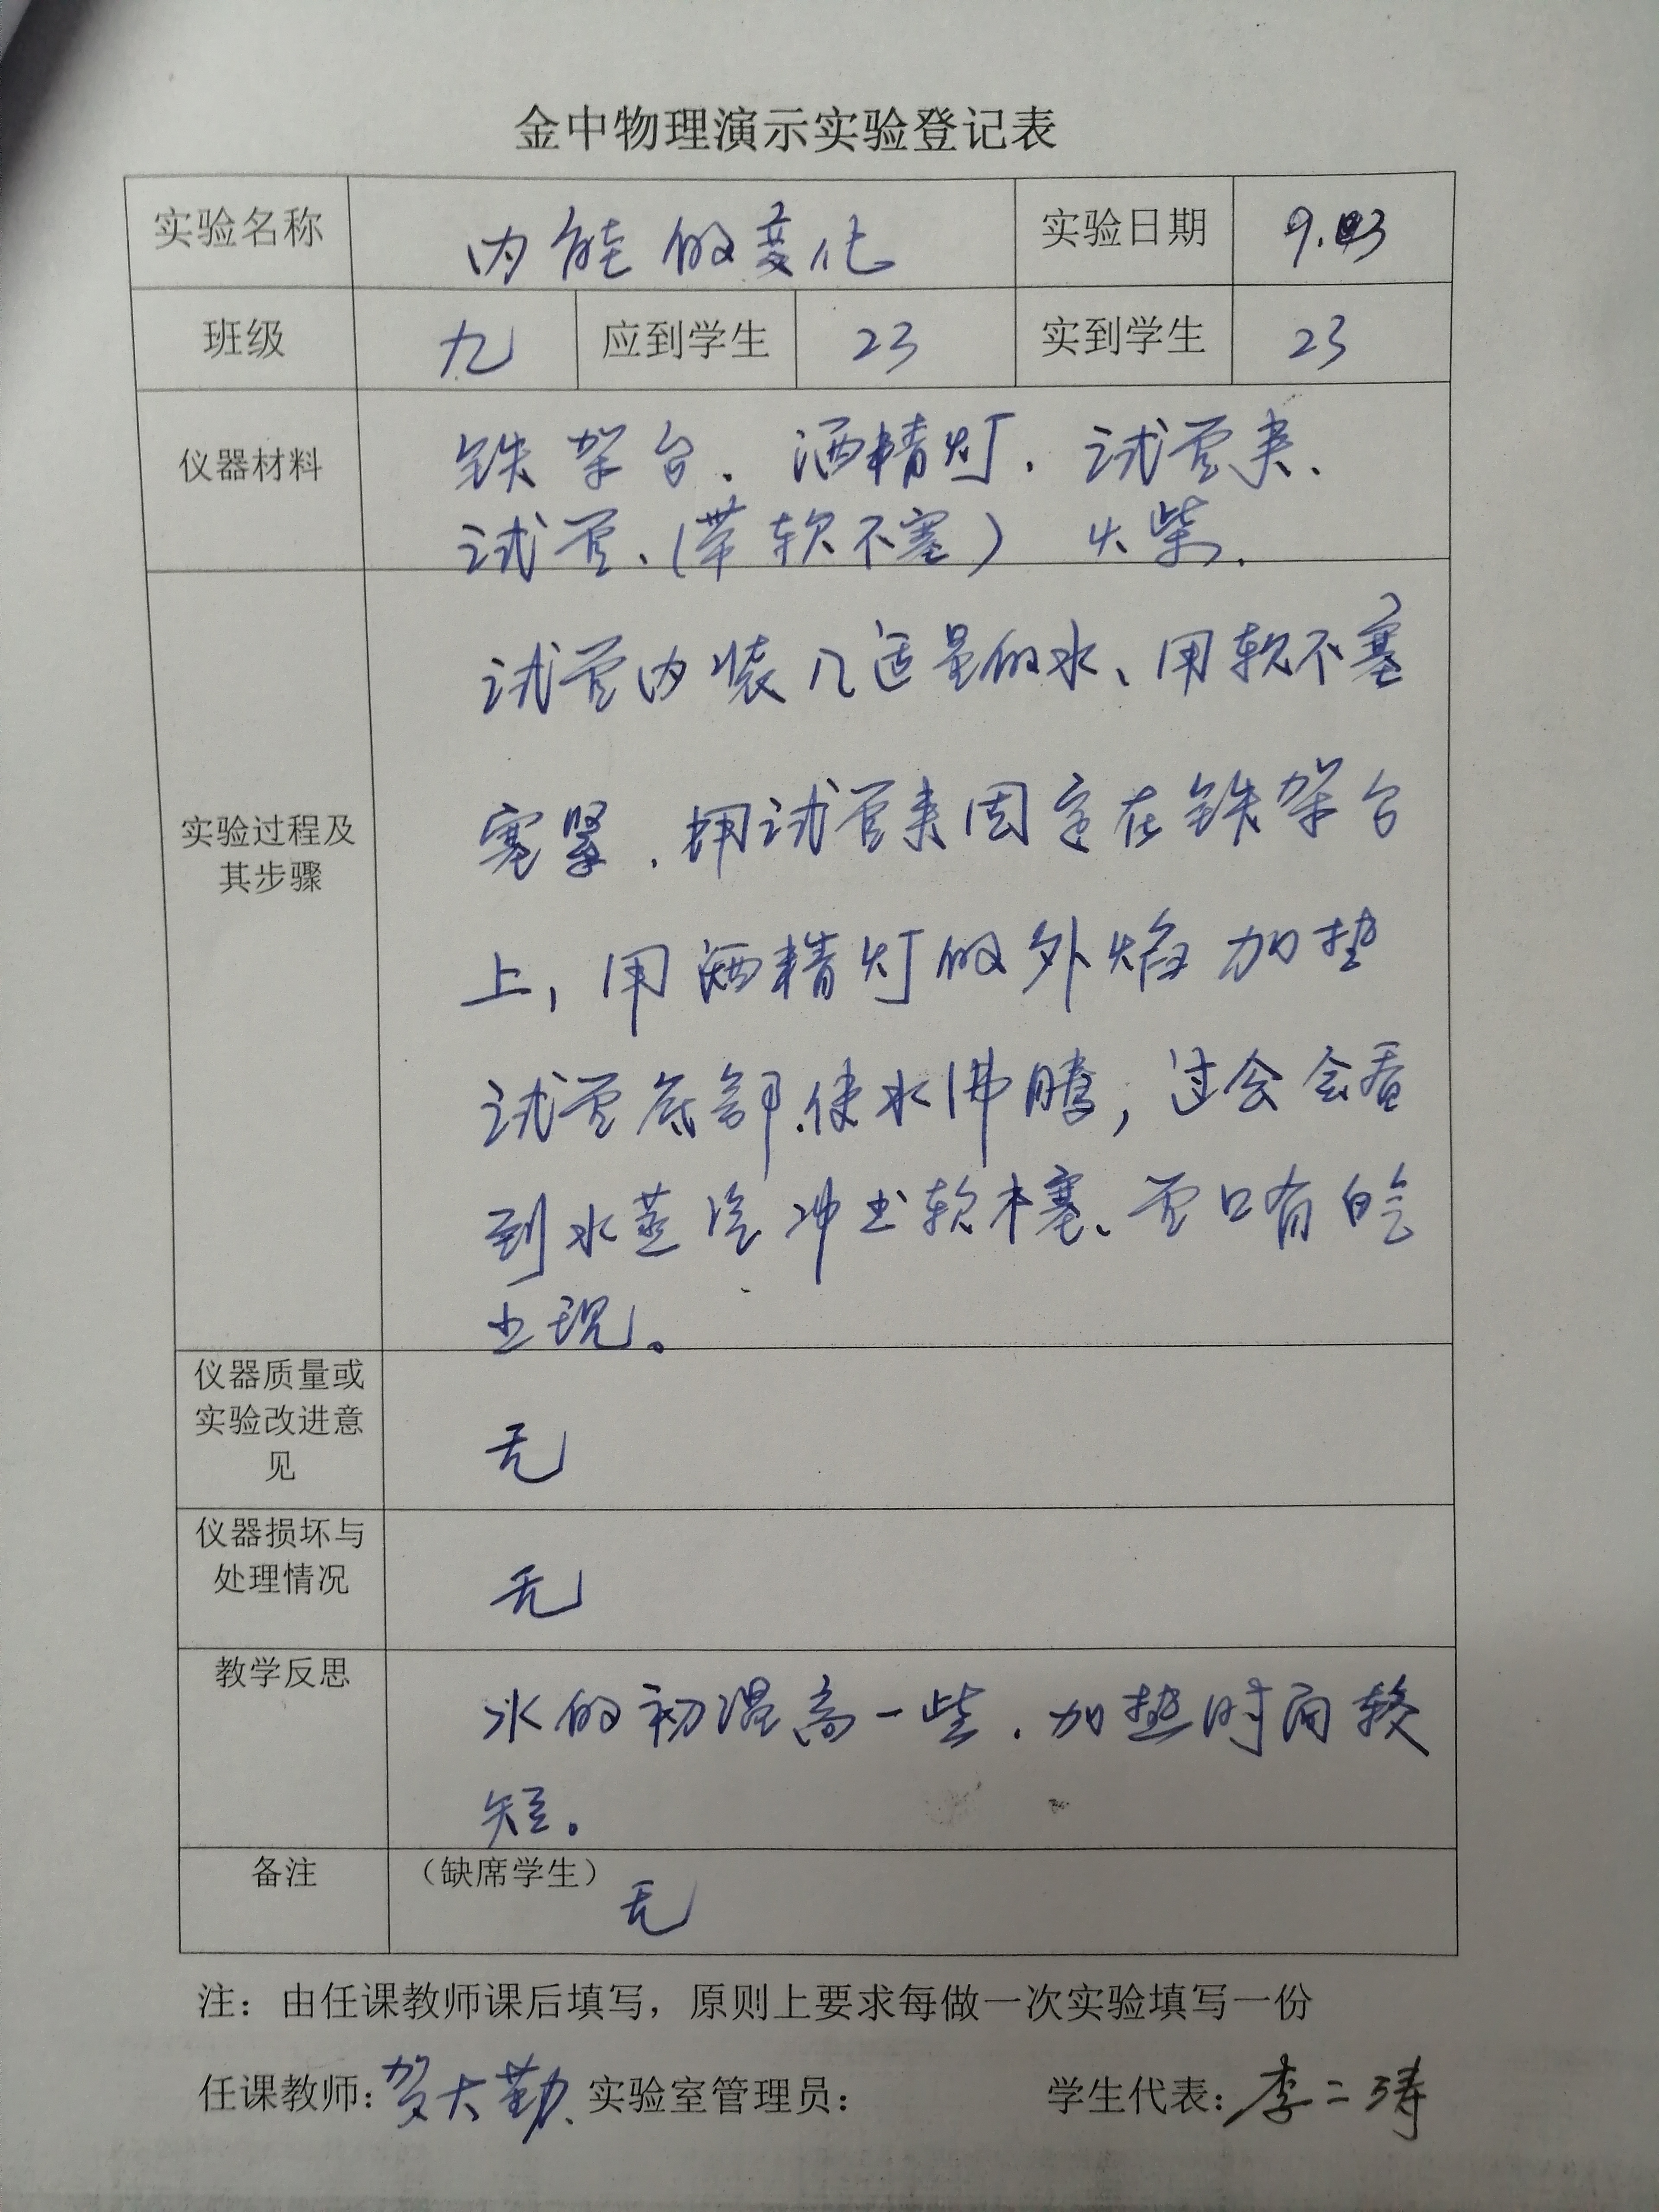 金中物理演示实验登记表
实验名称 内能的变化 实验日期 9.03
班级 九 应到学生 23 实到学生 23
仪器材料 铁架台、酒精灯、试管夹、
试管、(带软木塞) 火柴.
实验过程及
其步骤
试管内装入适量的水、用软木塞
塞紧.用试管夹固定在铁架台
上,用酒精灯的外焰加热
试管底部.使水沸腾,过会会看
到水蒸汽冲出软木塞、管口有白气
出现。
仪器质量或
实验改进意
见
无
仪器损坏与
处理情况
无
教学反思 水的初温高一些.加热时间较
短。
备注 (缺席学生) 无
注：由任课教师课后填写，原则上要求每做一次实验填写一份
任课教师:贺大勤 实验室管理员： 学生代表:李二涛